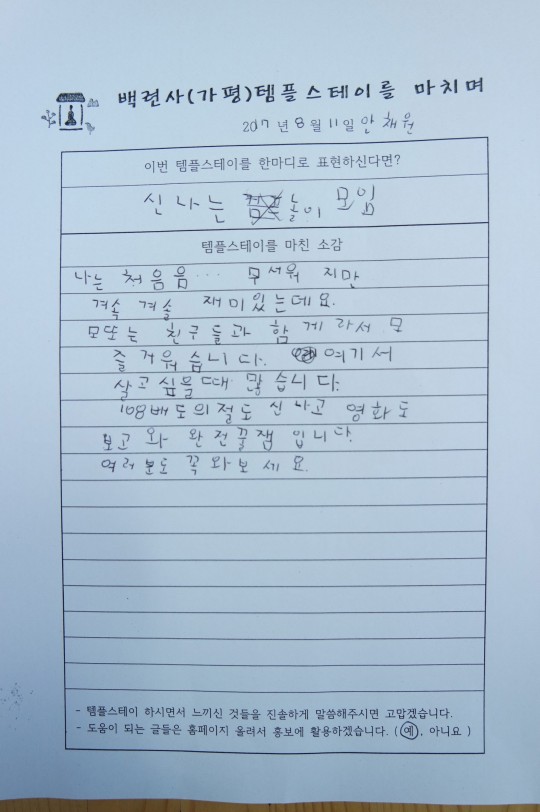 백련사(가평)템플스테이를 마치며
2017년 8월 11일 안채원
이번 템플스테이를 한마디로 표현하신다면?
신나는 놀이 모임
템플스테이를 마친 소감
나는 처음음... 무서워 지만
겨속 겨솔 재미있는데요.
모또는 친구들과 함게라서 모
즐거워습니다. 여기서
살고싶을때 많습니다.
108배도의절도 신나고 영화도
보고 와 완전꿀잼 입니다.
여러분도 꼭 와보세요.
- 템플스테이 하시면서 느끼신 것들을 진솔하게 말씀해주시면 고맙겠습니다.
- 도움이 되는 글들은 홈페이지 올려서 홍보에 활용하겠습니다. ( 예, 아니요 )